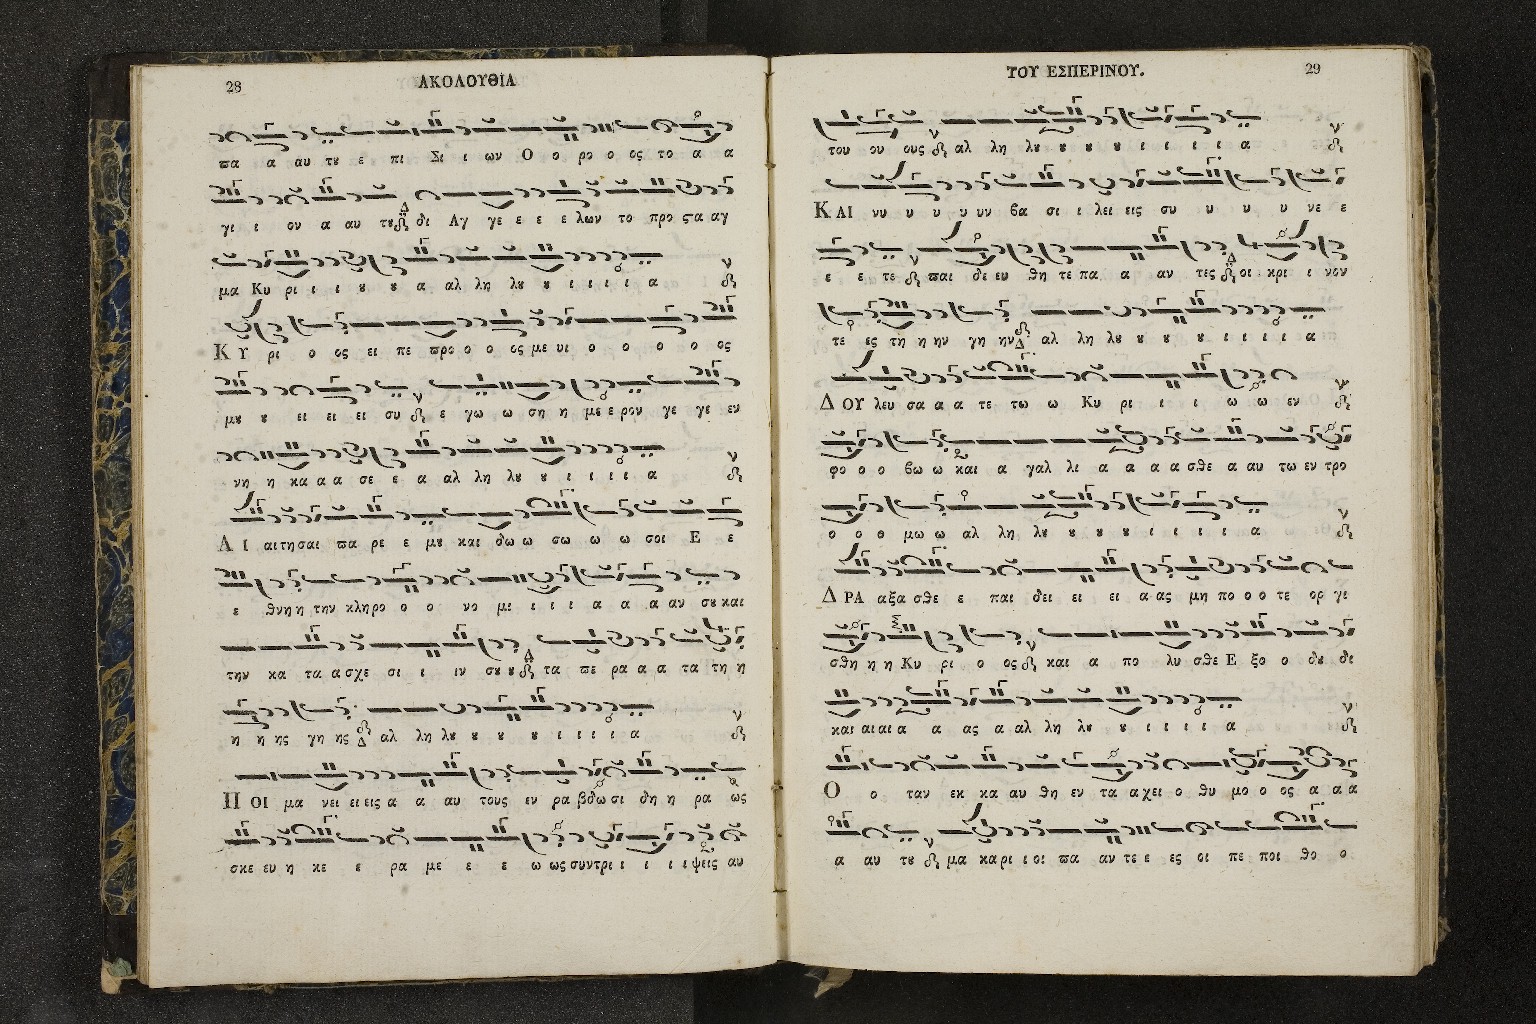 28
ΑΚΟΛΟΥΘΙΑ
πα α αυ τȣ ε πι Σι ι ων Ο ο ρο ο ος το α α
γι ι ον α αυ τȣ δι Αγ γε ε ε ε λων το προ ςα αγ
μα Κυ ρι ι ι ȣ ȣ α αλ λη λȣ ȣ ι ι ι ι α
Κ Υ ρι ο ος ει πε προ ο ο ος με υι ο ο ο ο ος
μȣ ȣ ει ει ει συ ε γω ω ση η με ε ρον γε γε εν
νη η κα α α σε ε α αλ λη λȣ ȣ ι ι ι ι α
Α Ι αι τη σαι πα ρι ε μȣ και δω ω σω ω ω σοι Ε ε
ε θνη η την κληρο ο ο νο μι ι ι ι α α α αν σȣ και
την κα τα α σχε σι ι ιν σȣ ȣ τα πε ρα α α τα τη η
η η ης γη ης αλ λη λȣ ȣ ȣ ȣ ι ι ι ι α
Π ΟΙ μα νει ει εις α α αυ τους εν ρα βδω σι δη η ρα ως
σκε ευ η κε ε ρα με ε ε ω ως συντρι ι ι ι ι ψεις αυ
ΤΟΥ ΕΣΠΕΡΙΝΟΥ.
29
του ου ους αλ λη λȣ ȣ ȣ ȣ ι ι ι ι α
Κ ΑΙ νυ υ υ υ υν βα σι ι λει εις συ υ υ υ νε ε
ε ε τε παι δε ευ θη τε πα α αν τες οι κρι ι νον
τε ες τη η ην γη ην αλ λη λȣ ȣ ȣ ȣ ι ι ι ι α
Δ ΟΥ λευ σα α α τε τω ω Κυ ρι ι ι ω ω εν
φο ο ο βω ω και α γαλ λι α α α α σθε α αυ τω εν τρο
ο ο ο μω ω αλ λη λȣ ȣ ȣ ȣ ι ι ι ι α
Δ ΡΑ αξα σθε ε παι δει ει ει α ας μη πο ο ο τε ορ γι
σθη η η Κυ ρι ο ος και α πο λυ σθε Ε ξο ο δȣ δι
και αι αι α α ας α αλ λη λȣ ȣ ι ι ι ι α
Ο ο ταν εκ κα αυ θη εν τα α χει ο θυ μο ο ος α α α
α αυ τȣ μα κα ρι ι οι πα αν τε ε ες οι πε ποι θο ο